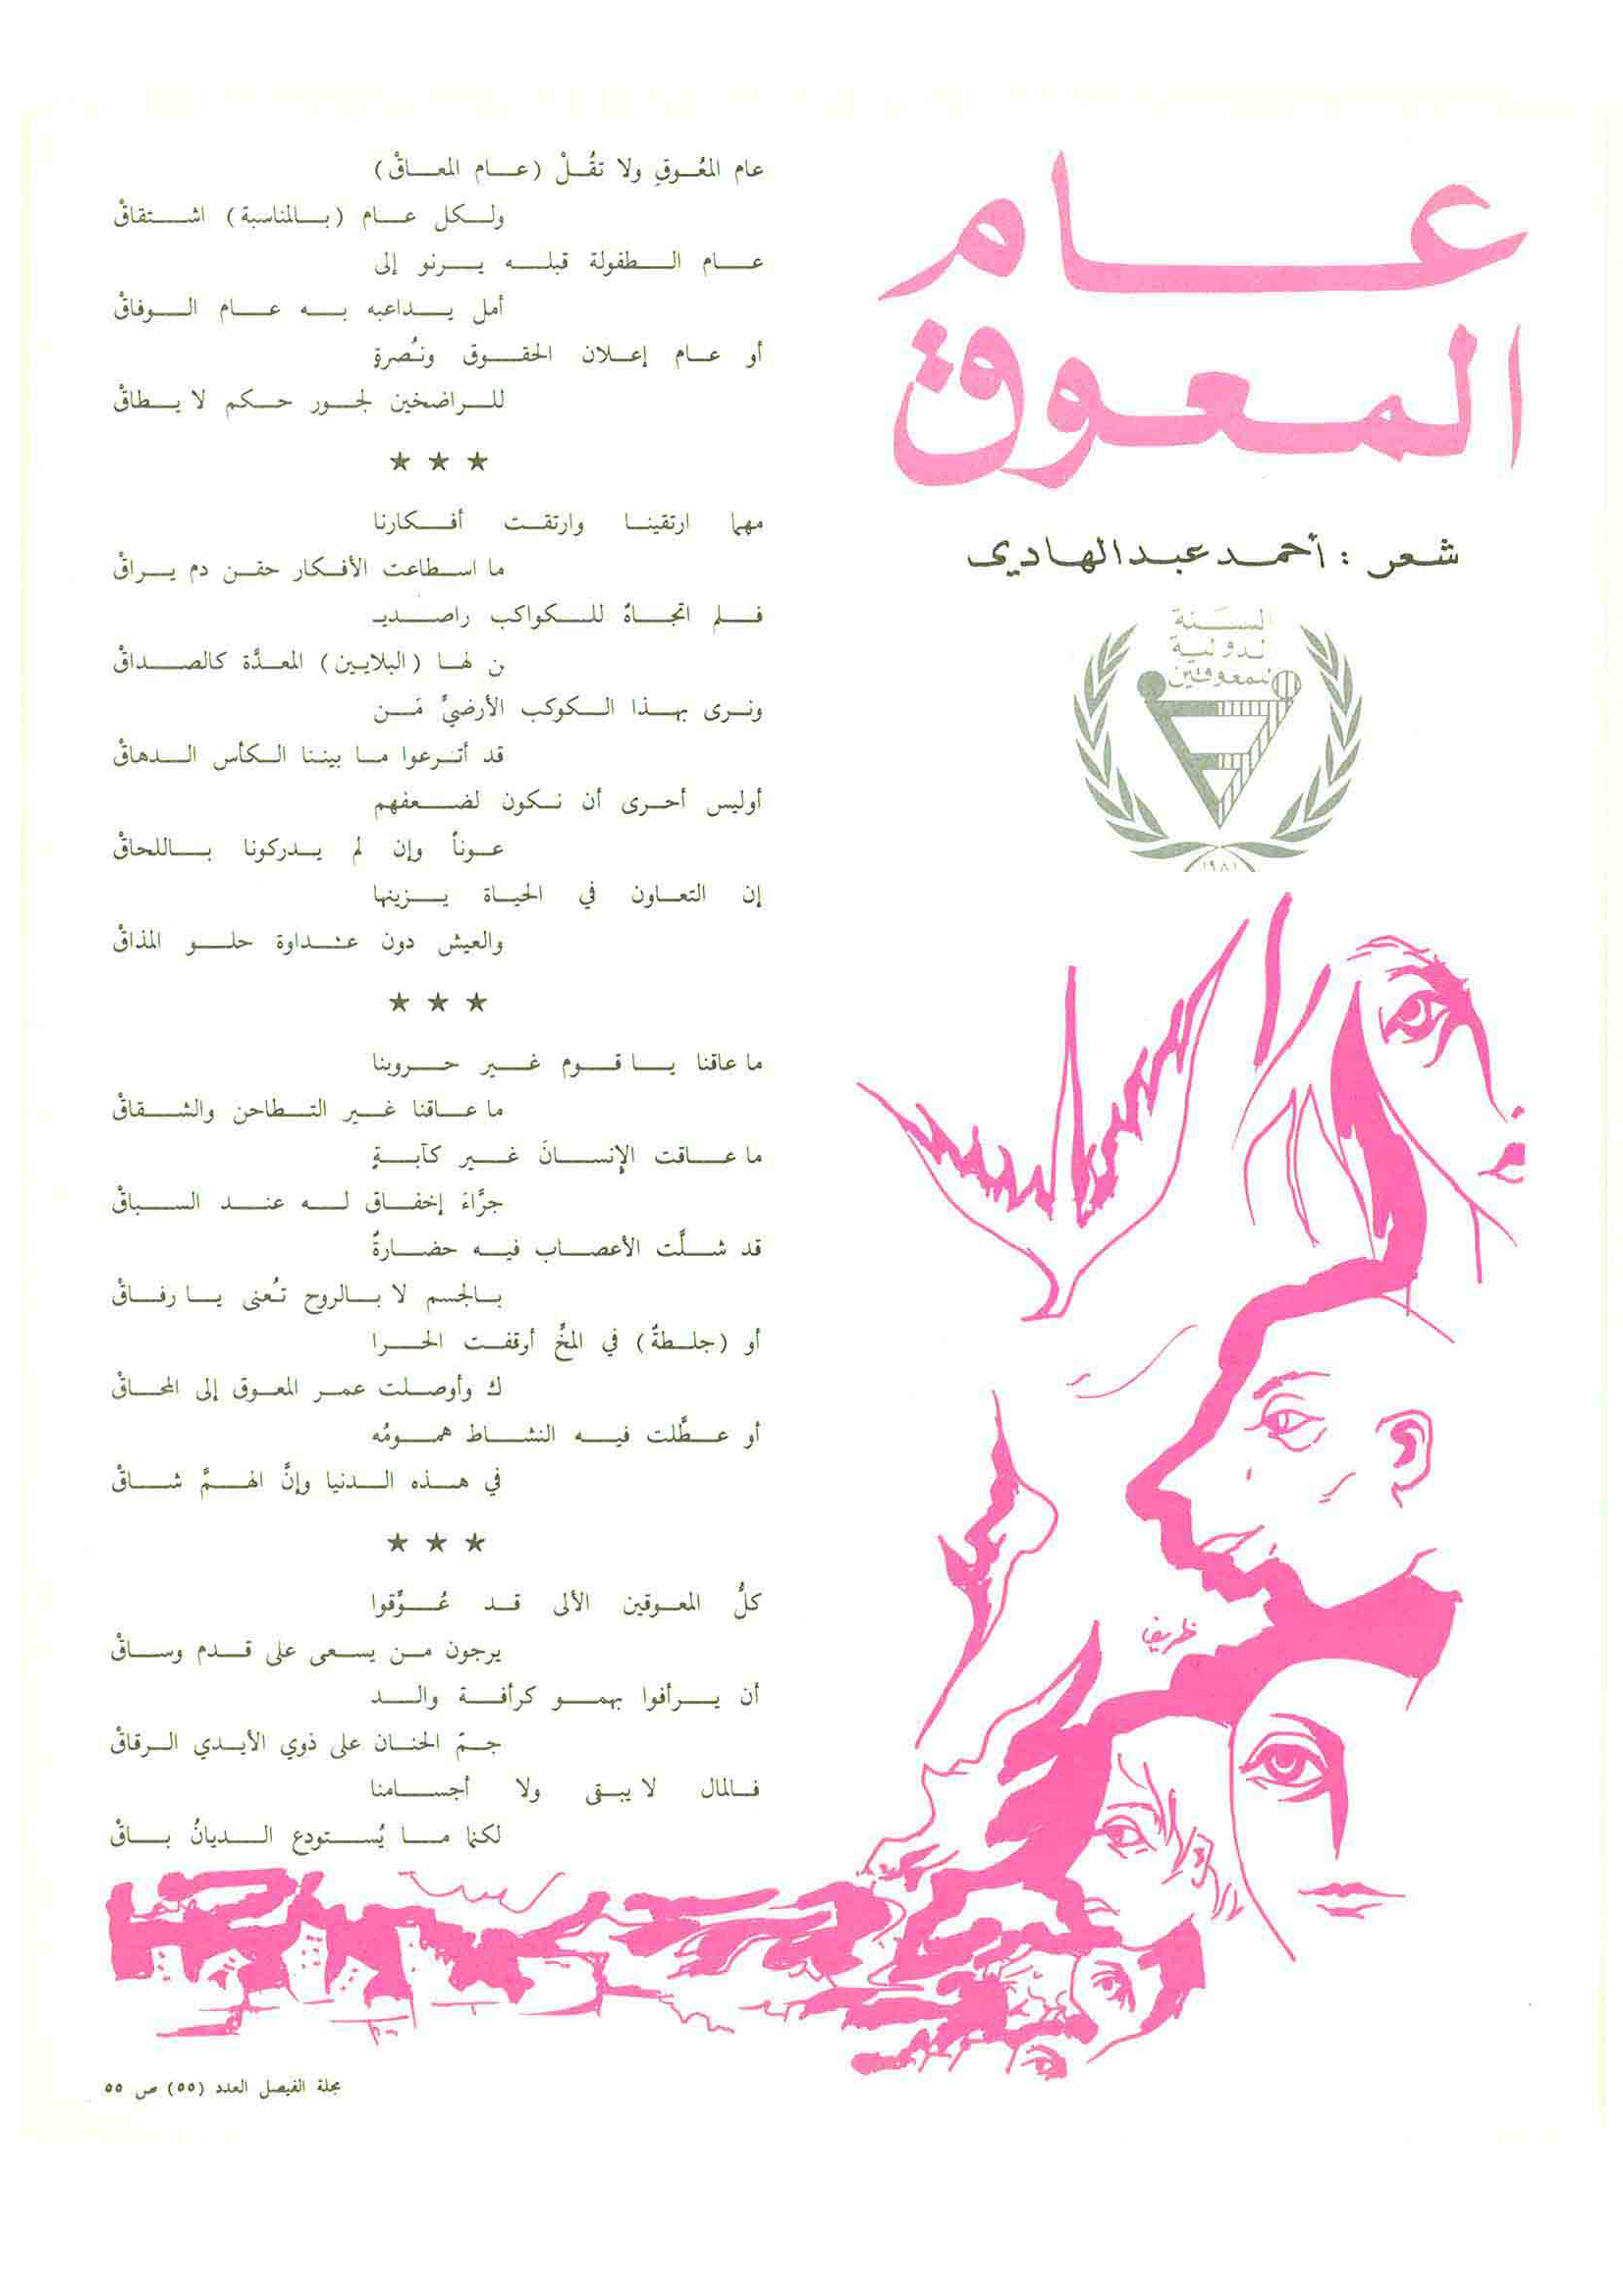 عام
المعوق
شعر : أحمد عبد الهادي
السنة
الدولية
للمعوقين
١٩٨١
عام المعُوقِ ولا تقُلْ (عام المعاقْ)
ولكل عام (بالمناسبة) اشتقاقْ
عام الطفولة قبله يرنو إلى
أمل يداعبه به عام الوفاقْ
أو عام إعلان الحقوق ونُصرةٍ
للراضخين لجور حكم لا يطاقْ
★ ★ ★
مهما ارتقينا وارتقت أفكارنا
ما اسطاعت الأفكار حقن دم يراقْ
فلم اتجاهٌ للكواكب راصديـ
ن لها (البلايين) المعدَّة كالصداقْ
ونرى بهذا الكوكب الأرضيِّ مَن
قد أترعوا ما بيننا الكأس الدهاقْ
أوليس أحرى أن نكون لضعفهم
عوناً وإن لم يدركونا باللحاقْ
إن التعاون في الحياة يزينها
والعيش دون عداوة حلو المذاقْ
★ ★ ★
ما عاقنا يا قوم غير حروبنا
ما عاقنا غير التطاحن والشقاقْ
ما عاقت الإنسانَ غير كآبةٍ
جرَّاءَ إخفاق له عند السباقْ
قد شلَّت الأعصاب فيه حضارةٌ
بالجسم لا بالروح تُعنى يا رفاقْ
أو (جلطةٌ) في المخِّ أوقفت الحرا
ك وأوصلت عمر المعوق إلى المحاقْ
أو عطَّلت فيه النشاط همومُه
في هذه الدنيا وإنَّ الهمَّ شاقْ
★ ★ ★
كلُّ المعوقين الألى قد عُوِّقوا
يرجون من يسعى على قدم وساقْ
أن يرأفوا بهمو كرأفة والد
جمّ الحنان على ذوي الأيدي الرقاقْ
فالمال لا يبقى ولا أجسامنا
لكنما ما يُستودع الديانُ باقْ
ظريف
مجلة الفيصل العدد (٥٥) ص ٥٥